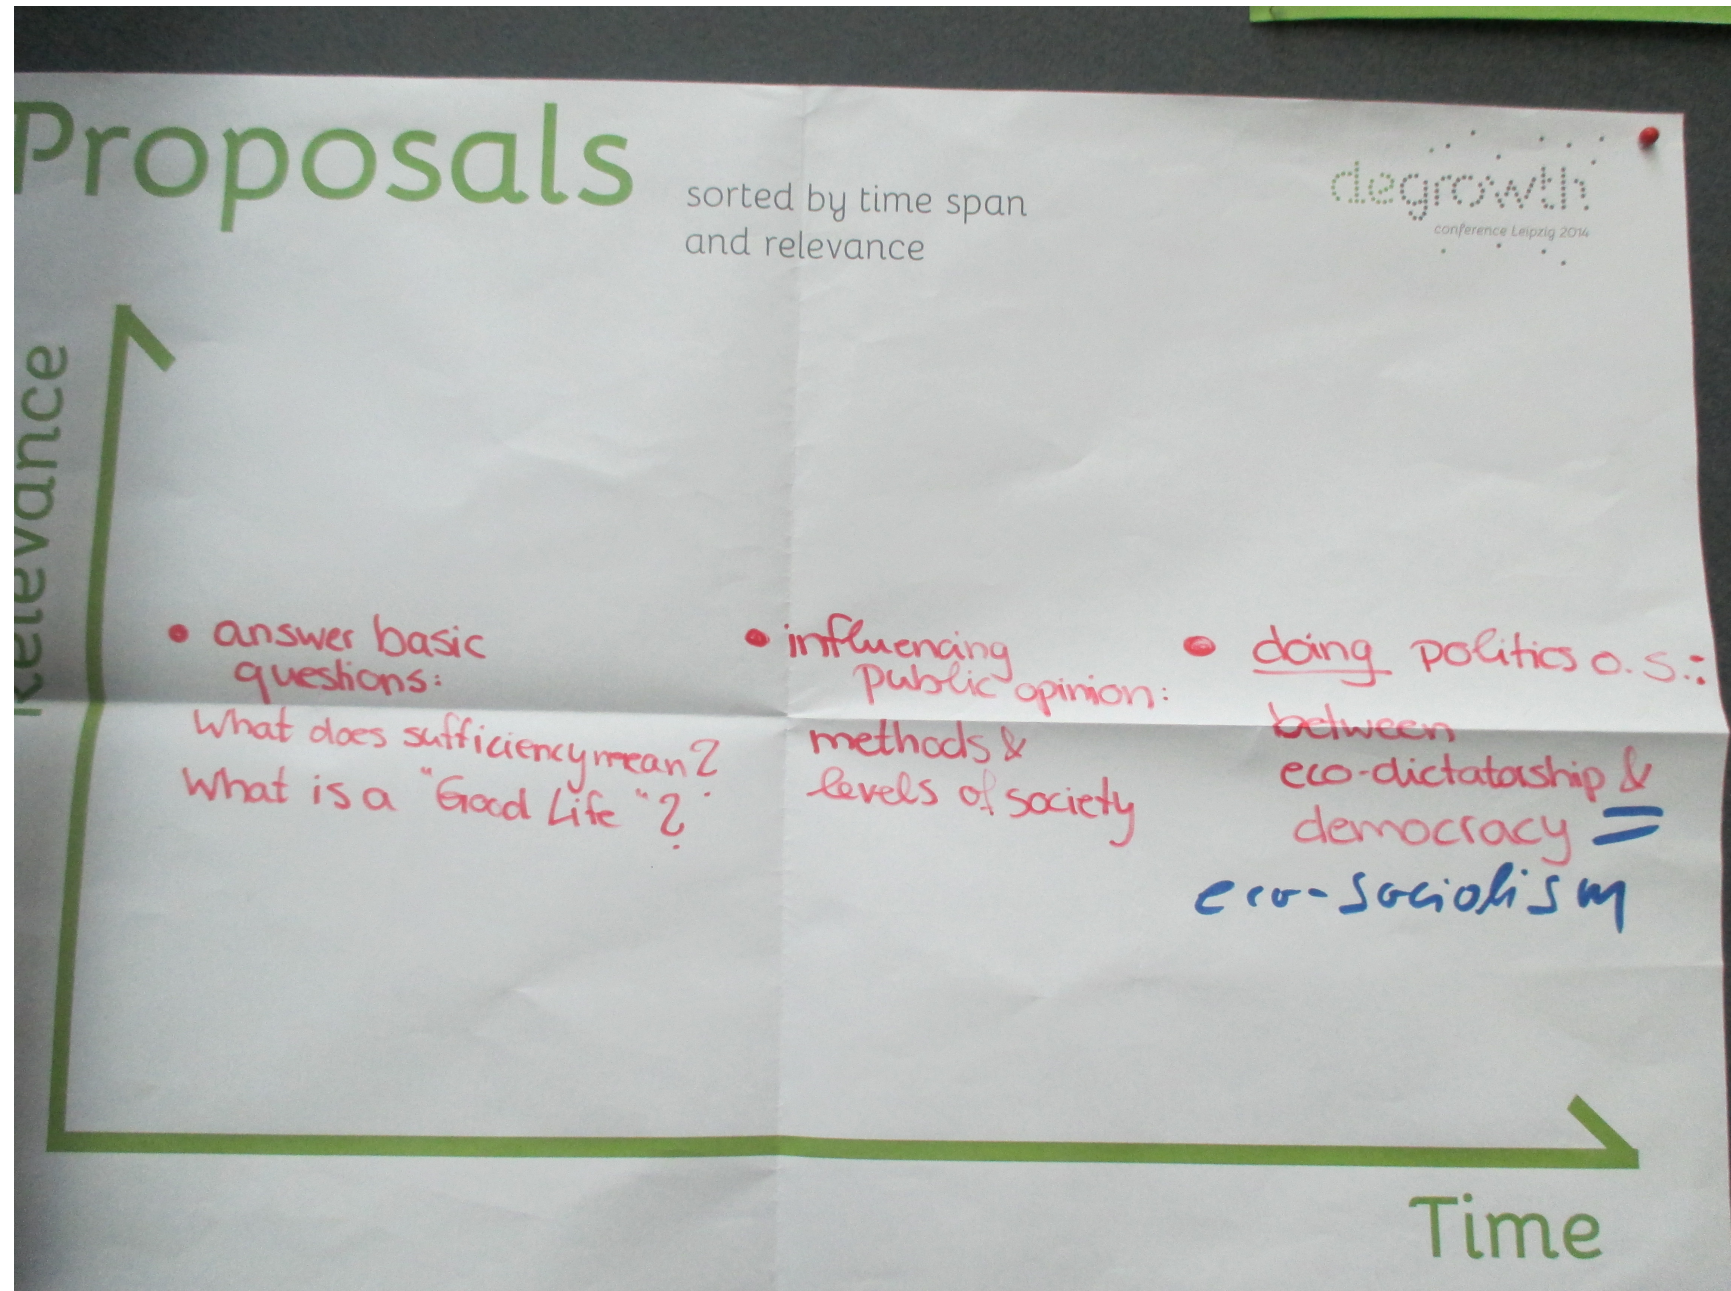 Proposals
sorted by time span
and relevance
degrowth
conference Leipzig 2014
Relevance
• answer basic
questions:
What does sufficiency mean?
What is a "Good Life"?
• influencing
public opinion:
methods &
levels of society
• doing politics o.s.:
between
eco-dictatorship &
democracy =
eco-socialism
Time